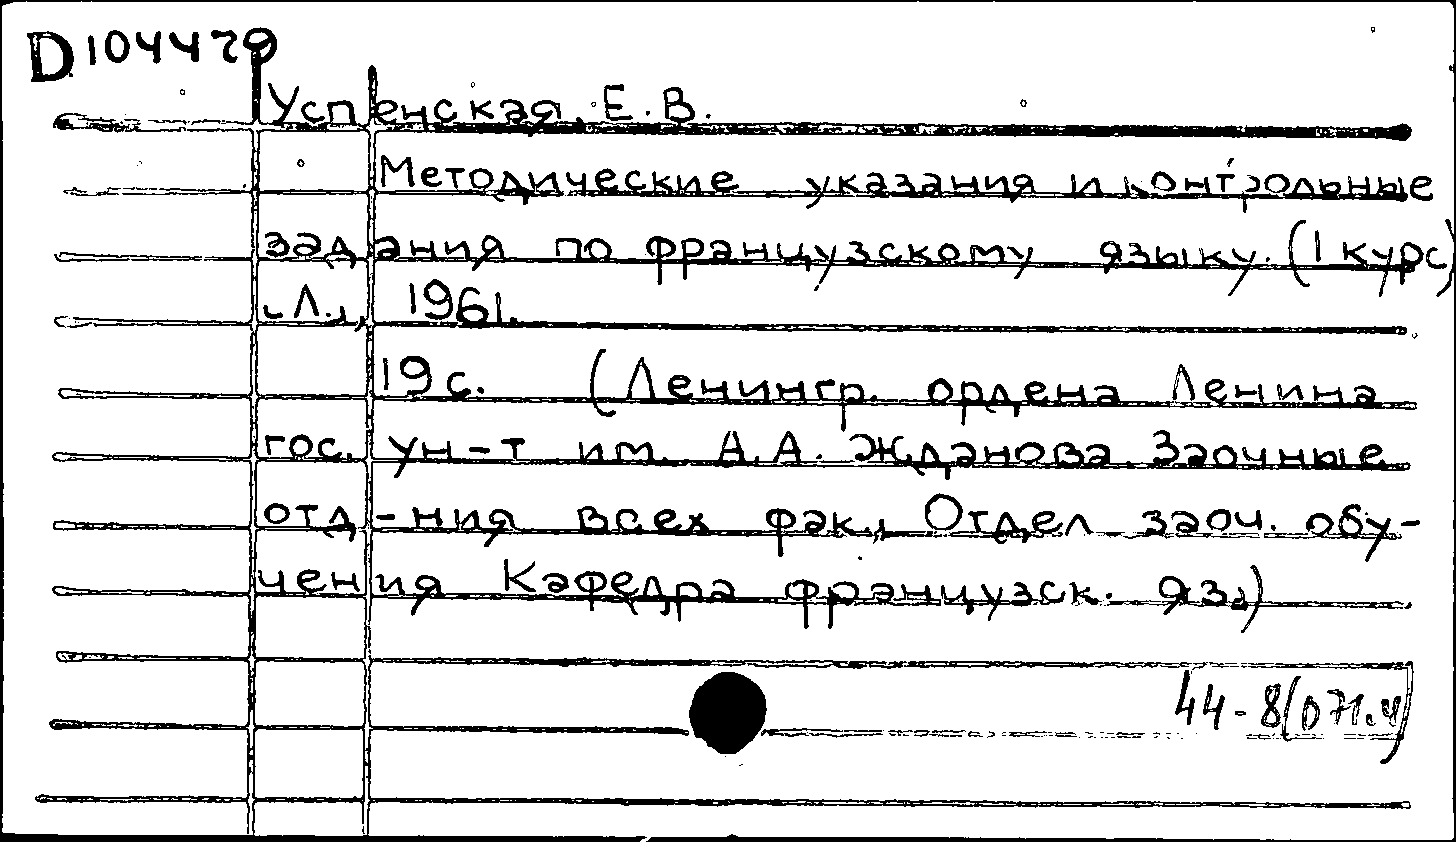 D104479
Успенская, Е. В.
Методические указания и контрольные
задания по французскому языку. (1 курс)
Л., 1961.
19 с. (Ленингр. ордена Ленина
гос. ун-т им. А. А. Жданова. Заочные
отд-ния всех фак., Отдел заоч. обу-
чения Кафедра французск. яз.)
44-8(071.4)